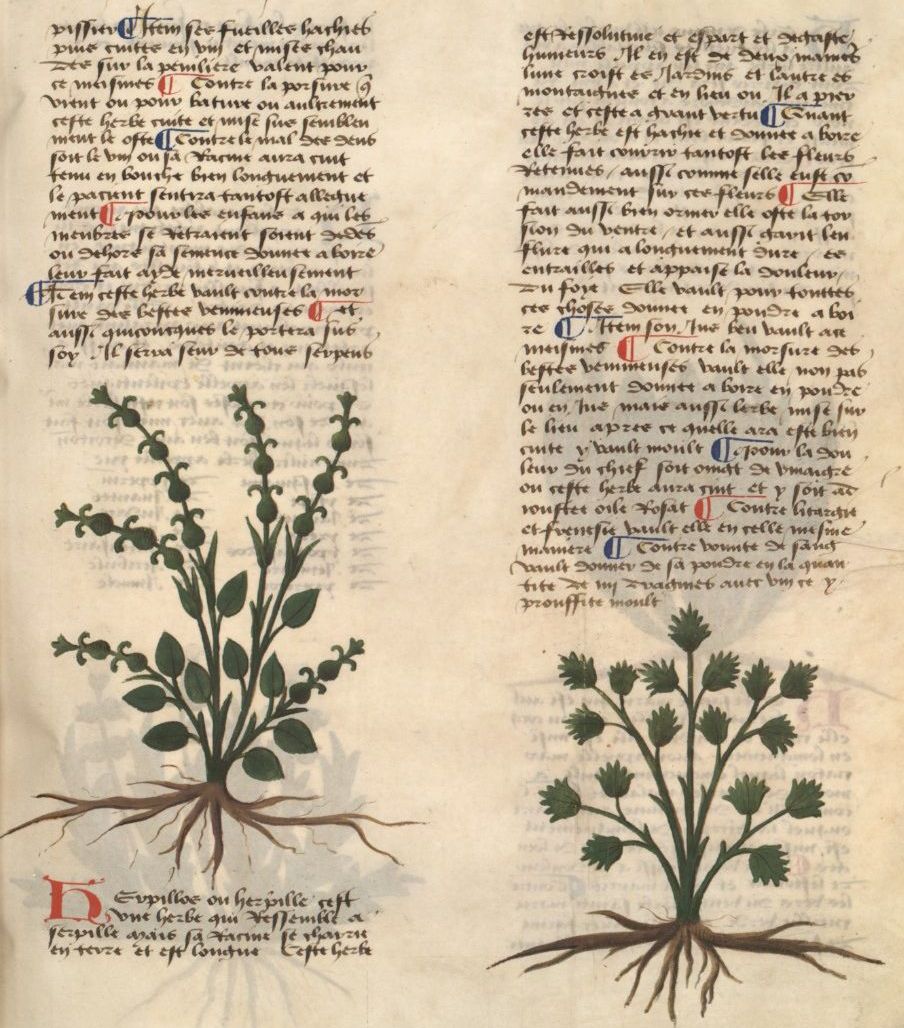 pissier ¶ Item ses fueilles hachies
puis cuittes en vin et mises chau
des sur la peniliere valent pour
ce meismes ¶ Contre la porsure q̄
vient ou pour bature ou aultrement
ceste herbe cuite et mise sus semblen
ment le oste ¶ Contre le mal des dens
soit le vin ou sa Racine aura cuit
tenu en bouche bien longuement et
le pacient sentira tantost allegue
ment ¶ pour les enfans a qui les
menbres se Retraient soient dedes
ou dehors sa semence donnee a boire
leur fait ayde merveilleusement
¶ Item ceste herbe vault contre la mor
sure des bestes venimeuses ¶ et
aussi quiconques le portera sus
soy Il sera seur de tous serpens
Herpillos ou herpille cest
vne herbe qui Ressemble a
serpille mais sa Racine se charrie
en terre et est longue Ceste herbe
est Resolutiue et espart et degaste
humeurs . Il en est de deux manieres
lune croist es Jardins et lautre es
montaignes et en lieu ou Il a pier
res et ceste a grant vertu ¶ Quant
ceste herbe est hachie et donnee a boire
elle fait courir tantost les fleurs
Retenues / aussi comme selle eust co
mandement sur ces fleurs ¶ Elle
fait aussi bien oriner elle oste la tor
sion du ventre / et aussi garit len
flure qui a longuement dure / es
entrailles et appaise la douleur
du foye Elle vault pour touttes
ces choses donnee en poudre a boi
re ¶ Item son Jus beu vault a ce
meismes ¶ Contre la morsure des
bestes venimeuses vault elle non pas
seulement donnee a boire en poudre
ou en Jus / mais aussi lerbe mise sur
le lieu apres ce quelle ara este bien
cuite y vault moult ¶ pour la dou
leur du chief soit oingt de vinaigre
ou ceste herbe aura cuit et y soit ad
iouste oile Rosat ¶ Contre litargie
et frenesie vault elle en celle mesme
maniere ¶ Contre vomite de sang
vault donner de sa poudre en la quan
tite de iiii dragmes auec vin ce y
prouffite moult